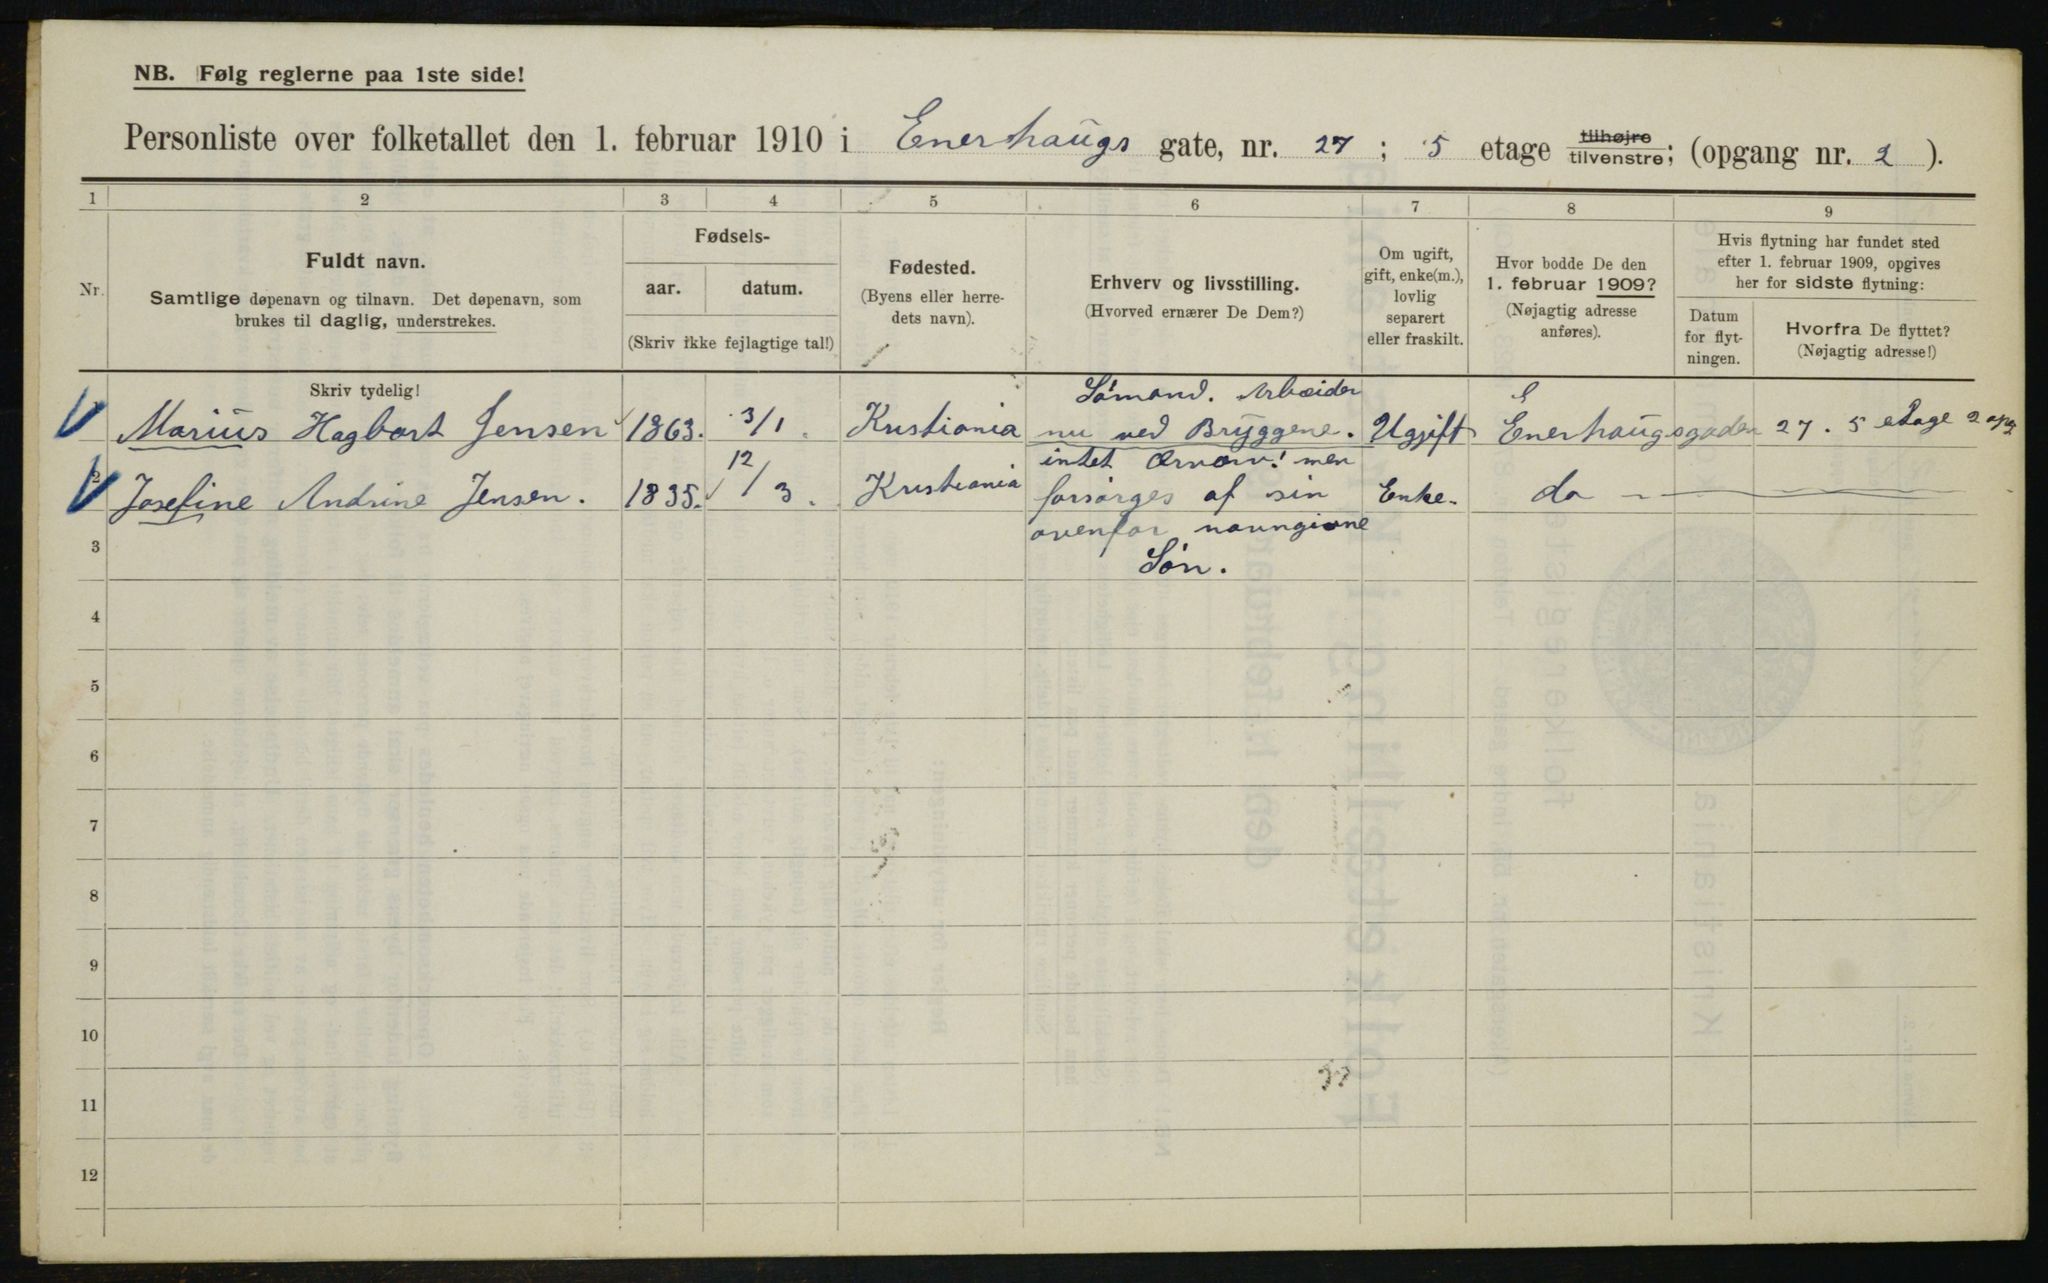 NB. Følg reglerne paa 1ste side!
Personliste over folketallet den 1. februar 1910 i Enerhaugs gate, nr. 27; 5 etage tilhøjre tilvenstre; (opgang nr. 2).
1 2 3 4 5 6 7 8 9
Nr.
Fuldt navn.
Samtlige døpenavn og tilnavn. Det døpenavn, som
brukes til daglig, understrekes.
Skriv tydelig!
Fødsels-
aar. datum.
(Skriv ikke fejlagtige tal!)
Fødested.
(Byens eller herre-
dets navn).
Erhverv og livsstilling.
(Hvorved ernærer De Dem?)
Om ugift,
gift, enke(m.),
lovlig
separert
eller fraskilt.
Hvor bodde De den
1. februar 1909?
(Nøjagtig adresse
anføres).
Hvis flytning har fundet sted
efter 1. februar 1909, opgives
her for sidste flytning:
Datum
for flyt-
ningen.
Hvorfra De flyttet?
(Nøjagtig adresse!)
1 Marius Hagbart Jensen 1863. 3/1. Kristiania
Sömand. Arbeider
nu ved Bryggene. Ugift Enerhaugsgaden 27. 5 etage 2 opg
2 Josefine Andrine Jensen. 1835. 12/3. Kristiania
intet Ærværv! men
forsörges af sin Enke. do -
ovenfor navngivne
Sön.
3
4
5
6
7
8
9
10
11
12